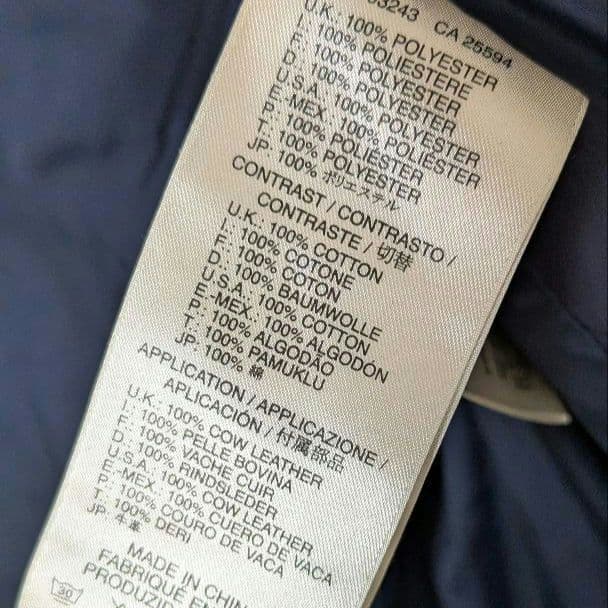 3243 CA 25594
U.K.: 100% POLYESTER
I.: 100% POLIESTERE
F.: 100% POLYESTER
D.: 100% POLYESTER
U.S.A.: 100% POLYESTER
E.-MEX.: 100% POLIÉSTER
P.: 100% POLIÉSTER
T.: 100% POLYESTER
JP.: 100% ポリエステル
CONTRAST / CONTRASTO /
CONTRASTE / 切替
U.K.: 100% COTTON
I.: 100% COTONE
F.: 100% COTON
D.: 100% BAUMWOLLE
U.S.A.: 100% COTTON
E.-MEX.: 100% ALGODÓN
P.: 100% ALGODÃO
T.: 100% PAMUKLU
JP.: 100% 綿
APPLICATION / APPLICAZIONE /
APLICACIÓN / 付属部品
U.K.: 100% COW LEATHER
I.: 100% PELLE BOVINA
F.: 100% VACHE CUIR
D.: 100% RINDSLEDER
U.S.A.: 100% COW LEATHER
E.-MEX.: 100% CUERO DE VACA
P.: 100% COURO DE VACA
T.: 100% DERI
JP.: 牛革
MADE IN CHIN
FABRIQUÉ EN
PRODUZID
30